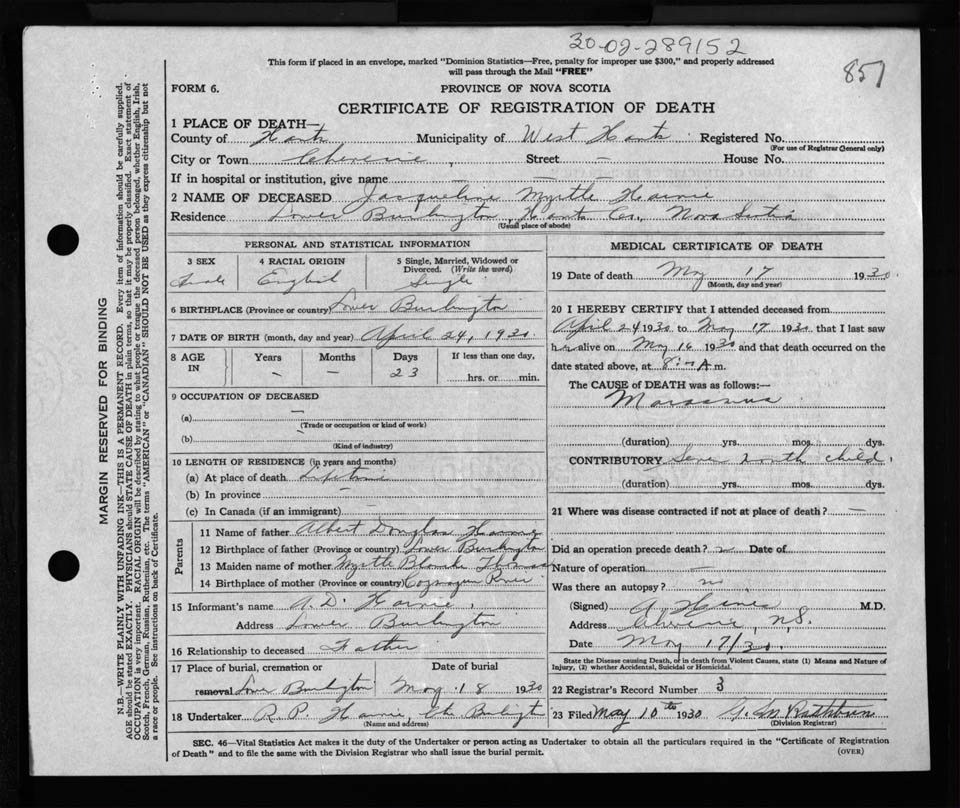 30-02-289152
851
This form if placed in an envelope, marked "Dominion Statistics—Free, penalty for improper use $300," and properly addressed
will pass through the Mail "FREE"
FORM 6.
PROVINCE OF NOVA SCOTIA
CERTIFICATE OF REGISTRATION OF DEATH
1 PLACE OF DEATH—
County of Hants Municipality of West Hants Registered No.
(For use of Registrar General only)
City or Town Cheverie, Street — House No.
If in hospital or institution, give name — — — —
2 NAME OF DECEASED Jacqueline Myrtle Harvie
Residence Lower Burlington, Hants Co., Nova Scotia
(Usual place of abode)
PERSONAL AND STATISTICAL INFORMATION
3 SEX 4 RACIAL ORIGIN 5 Single, Married, Widowed or
Divorced. (Write the word)
Female English Single
6 BIRTHPLACE (Province or country) Lower Burlington
7 DATE OF BIRTH (month, day and year) April 24, 1930
8 AGE IN Years Months Days If less than one day,
— — 23 hrs. or min.
9 OCCUPATION OF DECEASED
(a) —
(Trade or occupation or kind of work)
(b) —
(Kind of industry)
10 LENGTH OF RESIDENCE (in years and months)
(a) At place of death life time
(b) In province —
(c) In Canada (if an immigrant) —
Parents
11 Name of father Albert Douglas Harvie
12 Birthplace of father (Province or country) Lower Burlington
13 Maiden name of mother Myrtle Blanche
14 Birthplace of mother (Province or country) River
15 Informant's name A. D. Harvie,
Address Lower Burlington
16 Relationship to deceased Father
17 Place of burial, cremation or Date of burial
removal Lower Burlington May 18 1930
18 Undertaker R. P. Harvie,
(Name and address)
MEDICAL CERTIFICATE OF DEATH
19 Date of death May 17 1930
(Month, day and year)
20 I HEREBY CERTIFY that I attended deceased from
April 24 1930 to May 17 1930, that I last saw
her alive on May 16 1930 and that death occurred on the
date stated above, at 8 A m.
The CAUSE of DEATH was as follows:—
Marasmus
(duration) yrs. mos. dys.
CONTRIBUTORY Seven month child.
(duration) yrs. mos. dys.
21 Where was disease contracted if not at place of death? —
Did an operation precede death? Date of
Nature of operation —
Was there an autopsy? no
(Signed) M.D.
Address Cheverie, N.S.
Date May 17/30.
State the Disease causing Death, or in death from Violent Causes, state (1) Means and Nature of
Injury, (2) whether Accidental, Suicidal or Homicidal.
22 Registrar's Record Number 3
23 Filed May 10th 1930
(Division Registrar)
SEC. 46—Vital Statistics Act makes it the duty of the Undertaker or person acting as Undertaker to obtain all the particulars required in the "Certificate of Registration
of Death" and to file the same with the Division Registrar who shall issue the burial permit.
(OVER)
MARGIN RESERVED FOR BINDING
N.B.—WRITE PLAINLY WITH UNFADING INK—THIS IS A PERMANENT RECORD. Every item of information should be carefully supplied.
AGE should be stated EXACTLY. PHYSICIANS should STATE CAUSE OF DEATH in plain terms, so that it may be properly classified. Exact statement of
OCCUPATION is very important. RACIAL ORIGIN will be described by stating to what people or tongue the deceased person belonged, whether English, Irish,
Scotch, French, German, Russian, Ruthenian, etc. The terms "AMERICAN" or "CANADIAN" SHOULD NOT BE USED as they express citizenship but not
a race or people. See instructions on back of Certificate.